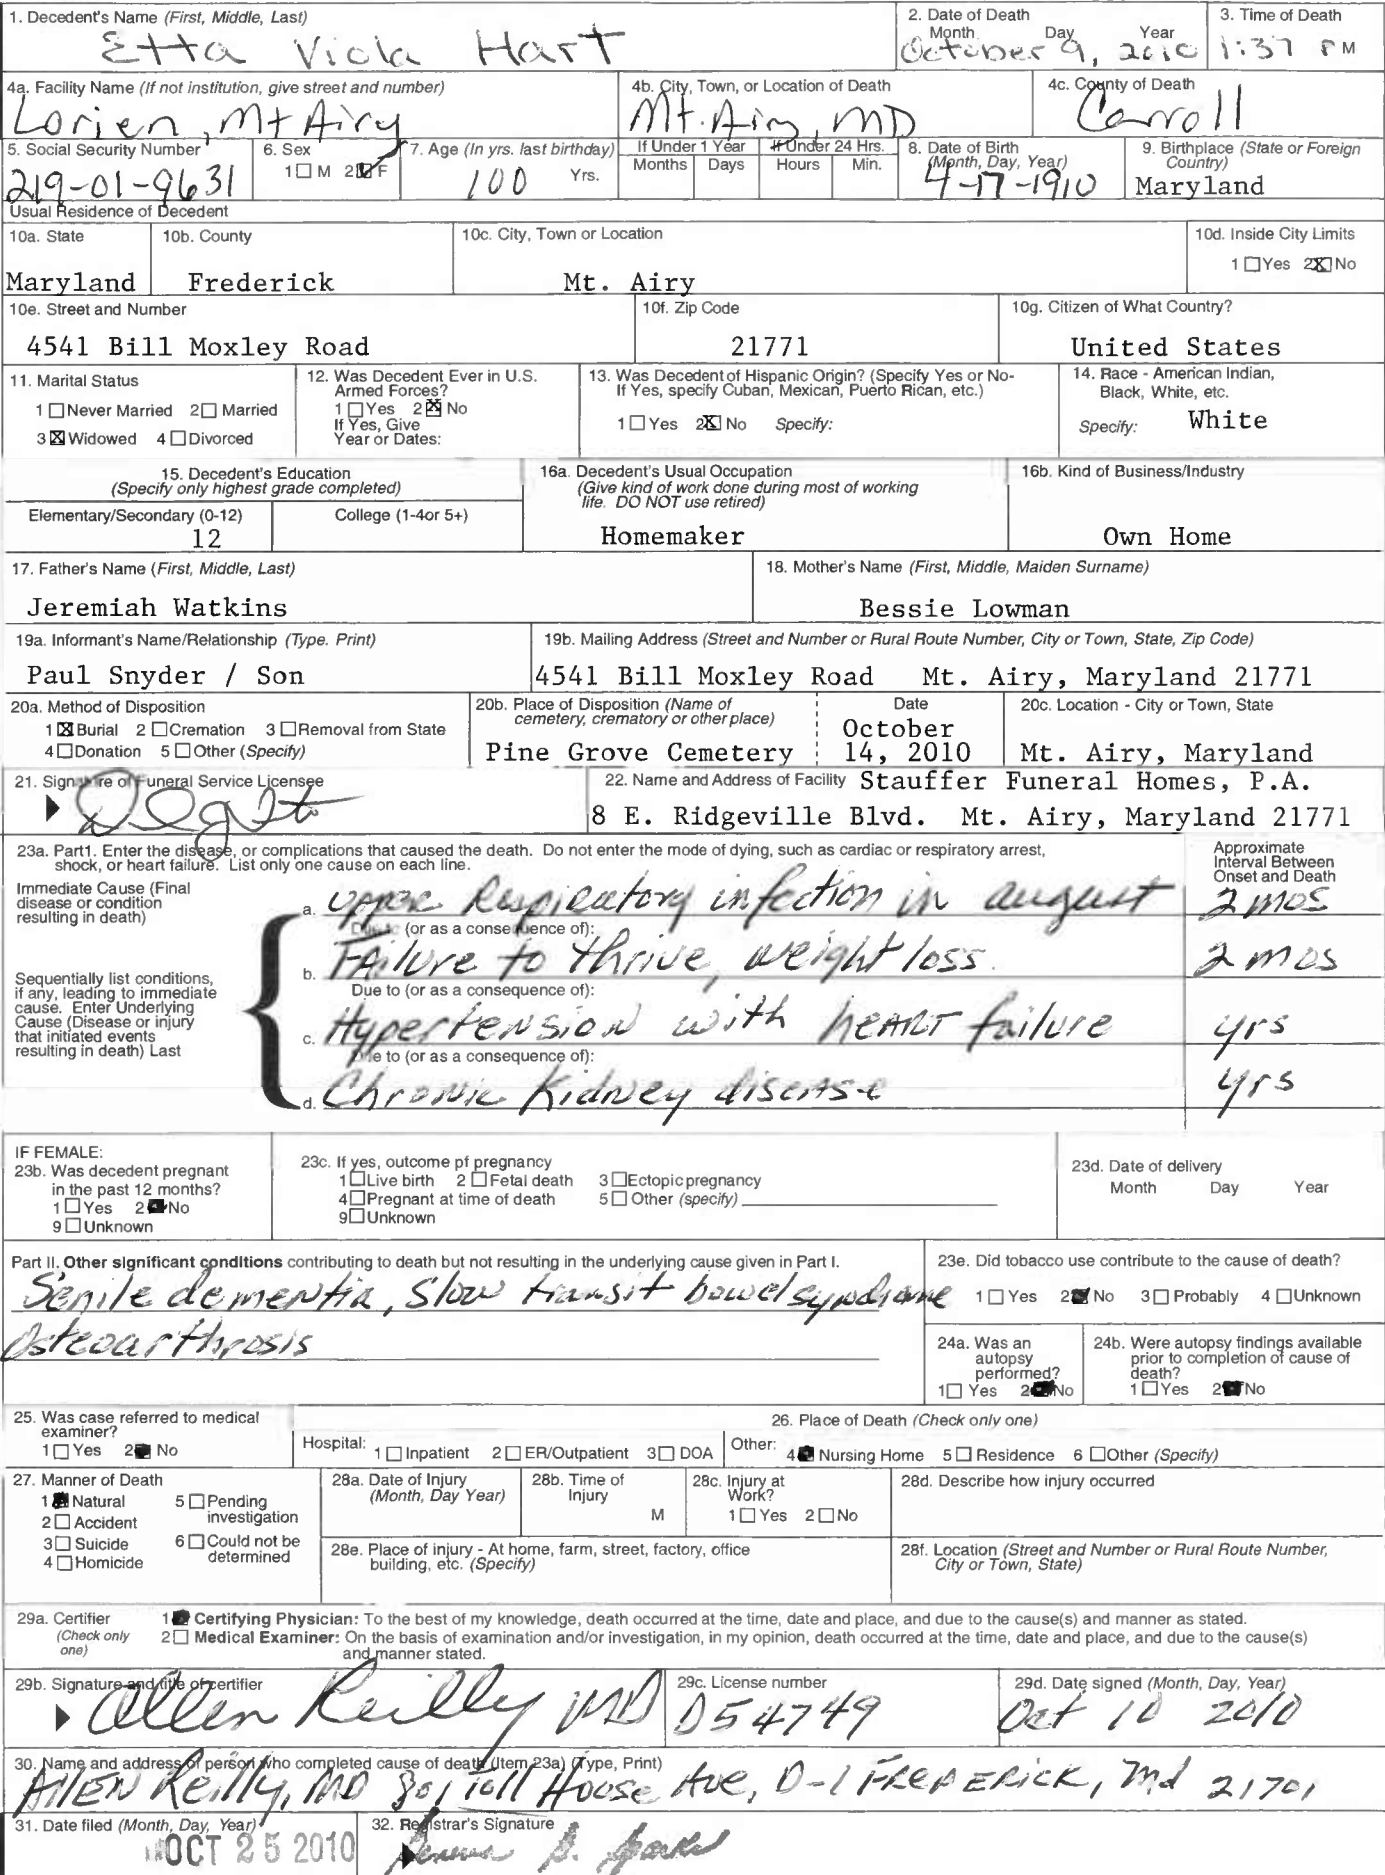 1. Decedent's Name (First, Middle, Last)
Etta Viola Hart
2. Date of Death
Month Day Year
October 9, 2010
3. Time of Death
1:37 PM
4a. Facility Name (If not institution, give street and number)
Lorien, Mt Airy
4b. City, Town, or Location of Death
Mt. Airy, MD
4c. County of Death
Carroll
5. Social Security Number
219-01-9631
6. Sex
1 ☐ M 2 ☑ F
7. Age (In yrs. last birthday)
100 Yrs.
If Under 1 Year
Months Days
If Under 24 Hrs.
Hours Min.
8. Date of Birth
(Month, Day, Year)
4-17-1910
9. Birthplace (State or Foreign
Country)
Maryland
Usual Residence of Decedent
10a. State
Maryland
10b. County
Frederick
10c. City, Town or Location
Mt. Airy
10d. Inside City Limits
1 ☐ Yes 2 ☒ No
10e. Street and Number
4541 Bill Moxley Road
10f. Zip Code
21771
10g. Citizen of What Country?
United States
11. Marital Status
1 ☐ Never Married 2 ☐ Married
3 ☒ Widowed 4 ☐ Divorced
12. Was Decedent Ever in U.S.
Armed Forces?
1 ☐ Yes 2 ☒ No
If Yes, Give
Year or Dates:
13. Was Decedent of Hispanic Origin? (Specify Yes or No-
If Yes, specify Cuban, Mexican, Puerto Rican, etc.)
1 ☐ Yes 2 ☒ No Specify:
14. Race - American Indian,
Black, White, etc.
Specify: White
15. Decedent's Education
(Specify only highest grade completed)
Elementary/Secondary (0-12)
12
College (1-4or 5+)
16a. Decedent's Usual Occupation
(Give kind of work done during most of working
life. DO NOT use retired)
Homemaker
16b. Kind of Business/Industry
Own Home
17. Father's Name (First, Middle, Last)
Jeremiah Watkins
18. Mother's Name (First, Middle, Maiden Surname)
Bessie Lowman
19a. Informant's Name/Relationship (Type. Print)
Paul Snyder / Son
19b. Mailing Address (Street and Number or Rural Route Number, City or Town, State, Zip Code)
4541 Bill Moxley Road Mt. Airy, Maryland 21771
20a. Method of Disposition
1 ☒ Burial 2 ☐ Cremation 3 ☐ Removal from State
4 ☐ Donation 5 ☐ Other (Specify)
20b. Place of Disposition (Name of
cemetery, crematory or other place)
Pine Grove Cemetery
Date
October
14, 2010
20c. Location - City or Town, State
Mt. Airy, Maryland
21. Signature of Funeral Service Licensee
22. Name and Address of Facility Stauffer Funeral Homes, P.A.
8 E. Ridgeville Blvd. Mt. Airy, Maryland 21771
23a. Part1. Enter the disease, or complications that caused the death. Do not enter the mode of dying, such as cardiac or respiratory arrest,
shock, or heart failure. List only one cause on each line.
Approximate
Interval Between
Onset and Death
Immediate Cause (Final
disease or condition
resulting in death)
a. Upper Respiratory infection in august 2 mos
Due to (or as a consequence of):
b. Failure to thrive, weight loss. 2 mos
Sequentially list conditions,
if any, leading to immediate
cause. Enter Underlying
Cause (Disease or injury
that initiated events
resulting in death) Last
Due to (or as a consequence of):
c. Hypertension with heart failure yrs
Due to (or as a consequence of):
d. Chronic Kidney disease yrs
IF FEMALE:
23b. Was decedent pregnant
in the past 12 months?
1 ☐ Yes 2 ■ No
9 ☐ Unknown
23c. If yes, outcome pf pregnancy
1 ☐ Live birth 2 ☐ Fetal death 3 ☐ Ectopic pregnancy
4 ☐ Pregnant at time of death 5 ☐ Other (specify)
9 ☐ Unknown
23d. Date of delivery
Month Day Year
Part II. Other significant conditions contributing to death but not resulting in the underlying cause given in Part I.
Senile dementia, slow transit bowel syndrome
Osteoarthrosis
23e. Did tobacco use contribute to the cause of death?
1 ☐ Yes 2 ■ No 3 ☐ Probably 4 ☐ Unknown
24a. Was an
autopsy
performed?
1 ☐ Yes 2 ■ No
24b. Were autopsy findings available
prior to completion of cause of
death?
1 ☐ Yes 2 ■ No
25. Was case referred to medical
examiner?
1 ☐ Yes 2 ■ No
26. Place of Death (Check only one)
Hospital: 1 ☐ Inpatient 2 ☐ ER/Outpatient 3 ☐ DOA
Other: 4 ■ Nursing Home 5 ☐ Residence 6 ☐ Other (Specify)
27. Manner of Death
1 ■ Natural 5 ☐ Pending
investigation
2 ☐ Accident
3 ☐ Suicide 6 ☐ Could not be
determined
4 ☐ Homicide
28a. Date of Injury
(Month, Day Year)
28b. Time of
Injury
M
28c. Injury at
Work?
1 ☐ Yes 2 ☐ No
28d. Describe how injury occurred
28e. Place of injury - At home, farm, street, factory, office
building, etc. (Specify)
28f. Location (Street and Number or Rural Route Number,
City or Town, State)
29a. Certifier
(Check only
one)
1 ■ Certifying Physician: To the best of my knowledge, death occurred at the time, date and place, and due to the cause(s) and manner as stated.
2 ☐ Medical Examiner: On the basis of examination and/or investigation, in my opinion, death occurred at the time, date and place, and due to the cause(s)
and manner stated.
29b. Signature and title of certifier
Allen Reilly MD
29c. License number
D54749
29d. Date signed (Month, Day, Year)
Oct 10 2010
30. Name and address of person who completed cause of death (Item 23a) (Type, Print)
Allen Reilly, MD 801 Toll House Ave, D-1 Frederick, Md 21701
31. Date filed (Month, Day, Year)
OCT 25 2010
32. Registrar's Signature